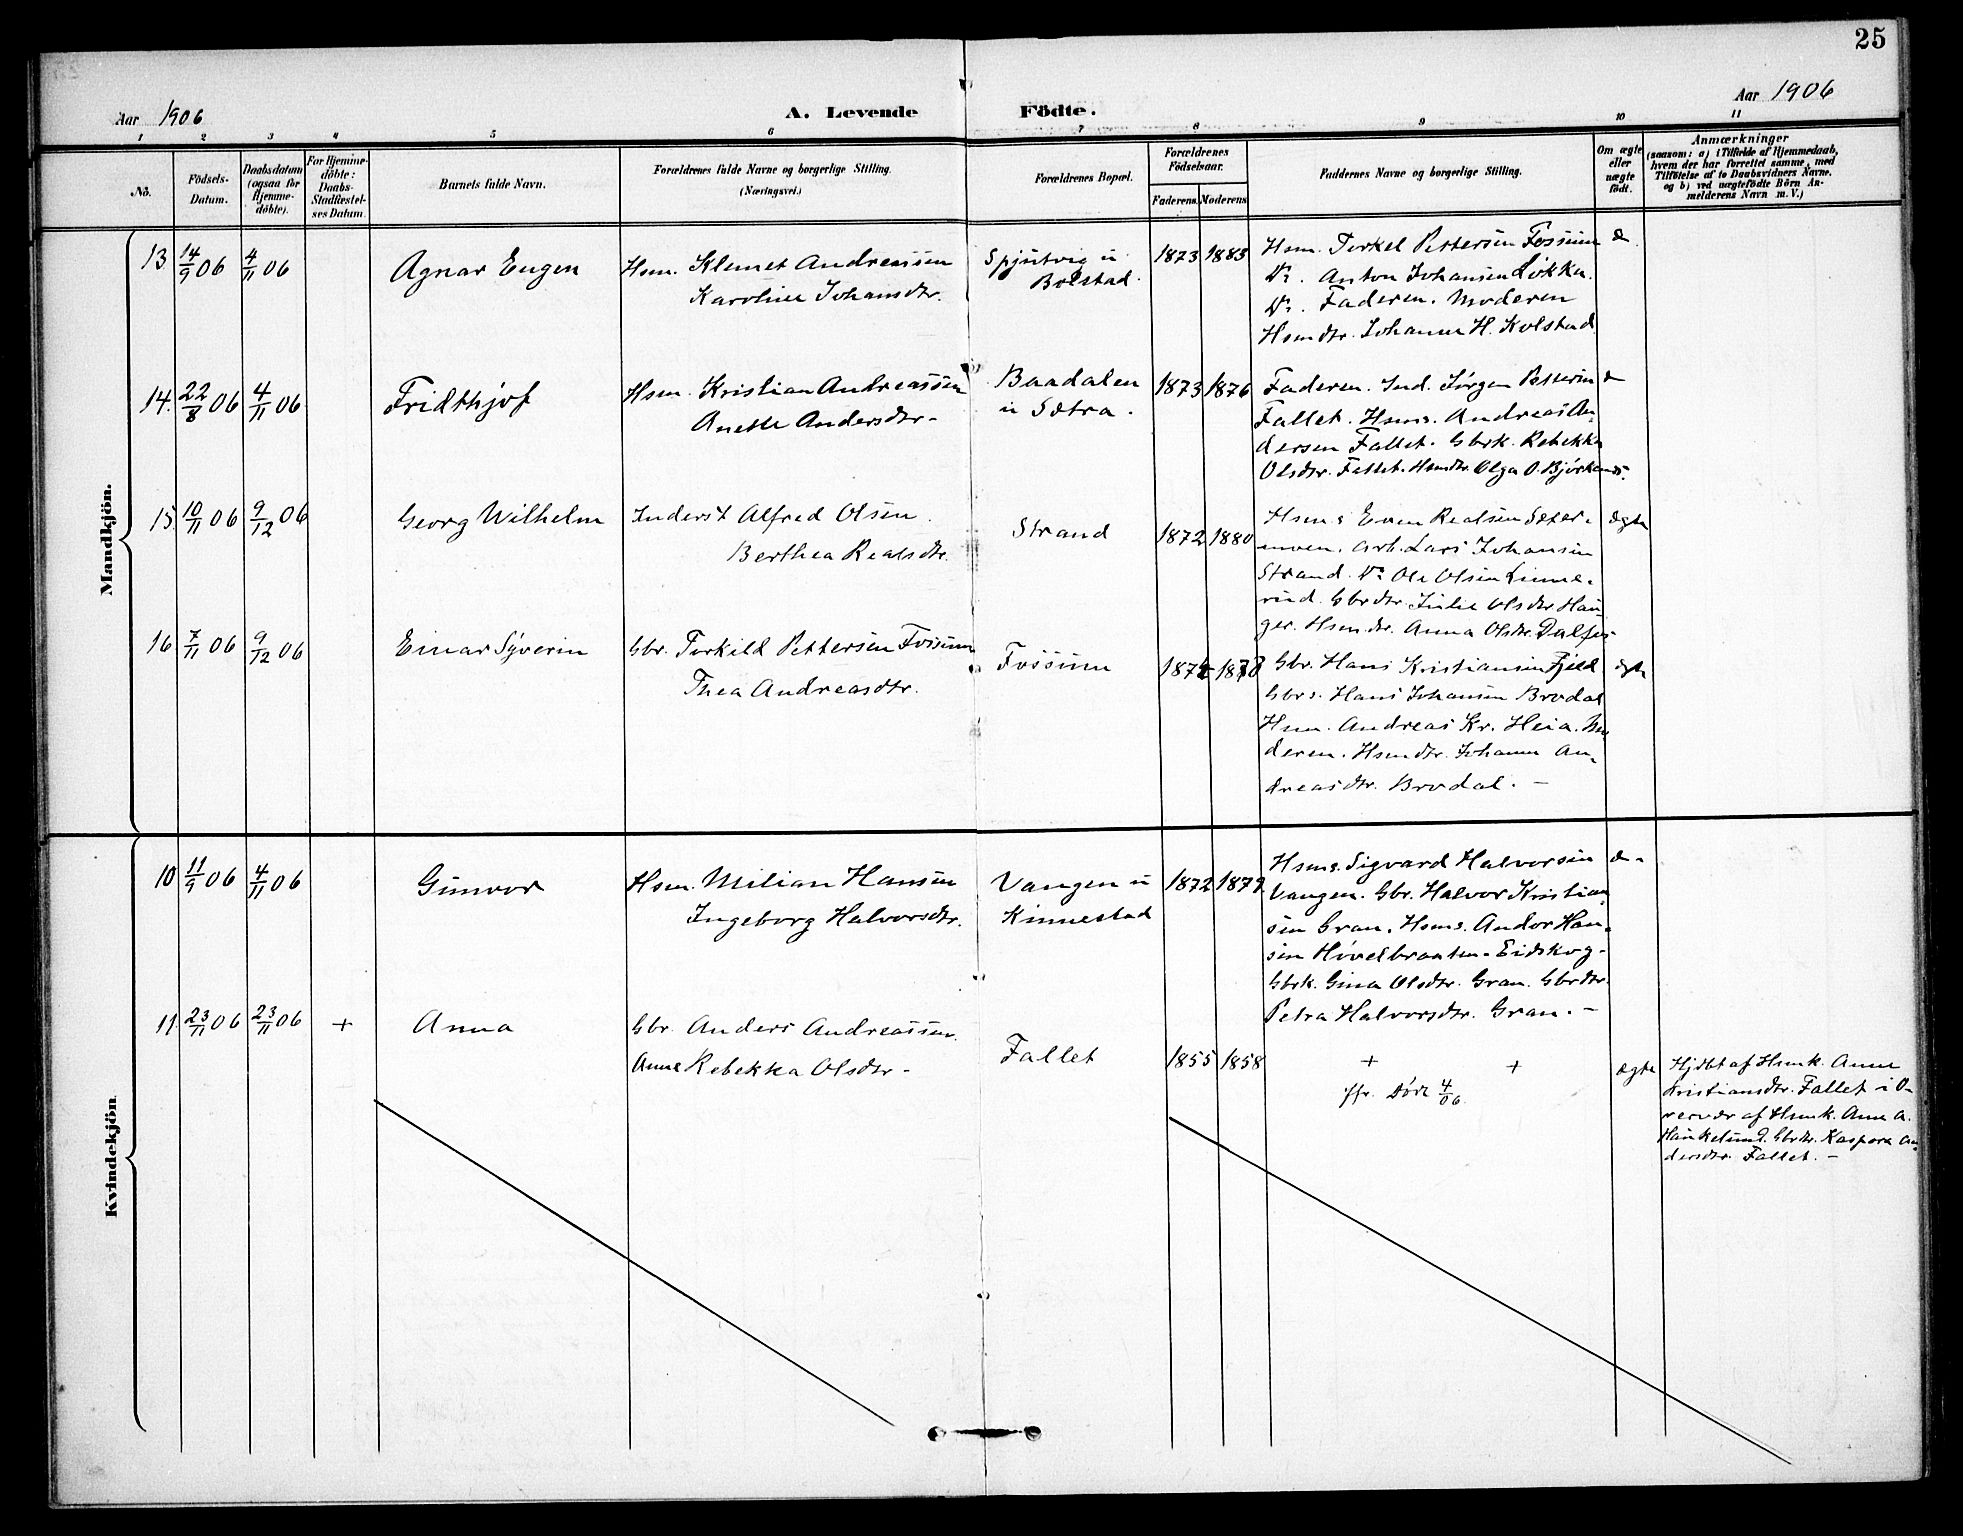 25
Aar 1906
A. Levende Födte.
Aar 1906
1 2 3 4 5 6 7 8 9 10 11
No.
Födsels-Datum.
Daabsdatum (ogsaa for Hjemme-döbte).
For Hjemme-döbte: Daabs-Stadfæstel-ses Datum.
Barnets fulde Navn.
Forældrenes fulde Navne og borgerlige Stilling.
(Næringsvei.)
Forældrenes Bopæl.
Forældrenes Födselsaar.
Faderens. Moderens.
Faddernes Navne og borgerlige Stilling.
Om ægte eller uægte födt.
Anmærkninger
(saasom: a) i Tilfælde af Hjemmedaab,
hvem der har forrettet samme, med
Tilföielse af to Daabsvidners Navne.
og b) ved uægtefödte Börn An-
melderens Navn m. V.)
Mandkjön.
13 14/9 06 4/11 06
Agnar Eugen
Hsm. Klemet Andreassen
Karoline Johansdtr.
Spjutvig u
Bolstad.
1873 1883
Hsm. Terkel Pettersen Fossum
Do. Anton Johansen Løkka.
Do. Faderen. Moderen
Hsmdtr. Johanne H. Kolstad
14. 22/8 06 4/11 06
Fridthjof
Hsm. Kristian Andreassen
Anette Andersdtr.
Baadalen
u Sætra.
1873 1876
Faderen. Ind. Jørgen Petterin
Fallet. Hsms. Andreas An-
dersen Fallet. Gbrk. Rebekka
Olsdtr. Fallet. Hsmdtr. Olga O.
15 10/11 06 9/12 06
Georg Wilhelm
Inderst Alfred Olsen.
Berthea Realsdtr.
Strand
1872 1880
Hsms Even Realsen Sæter-
moen. Arb. Lars Johansen
Strand. Do Ole Olsen Linne-
rud. Gbrdtr. Julie Olsdtr Hau-
ger. Hsmdtr. Anna Olsdtr.
ægte
16 7/11 06 9/12 06
Einar Syverin
Gbr. Torkild Pettersen Fossum
Thea Andreasdtr.
Fossum
Gbr. Hans Kristiansen Fjeld
Gbrs. Hans Johansen Brodal
Hsm. Andreas Kr. Heia. Mo
deren. Hsmdtr. Johanne An-
dreasdtr. Brodal. -
ægte
Kvindekjön
10 11/9 06 4/11 06
Gunvor
Hsm. Milian Hansen
Ingeborg Halvorsdtr.
Vangen u
Kinnestad
1872 1879
Hsms. Sigvard Halvorsen
Vangen. Gbr. Halvor Kristian-
sen Gran. Hsms. Andor Han-
sen Høvelbraaten. Eidskog-
Gbrk. Gina Olsdtr. Gran. Gbrdtr.
Petra Halvorsdtr. Gran. -
11. 23/11 06 23/11 06 +
Anna
Gbr. Anders Andreassen.
Anne Rebekka Olsdtr-
Fallet
1855 1858
+ +
Død 4/06
ægte
Hjdbt af Hsmk. Anne
Kristiansdtr. Fallet i O-
vervær af Hsmk. Anne A.
Haukelund. Gbrdtr. Kaspara An-
dersdtr. Fallet. -